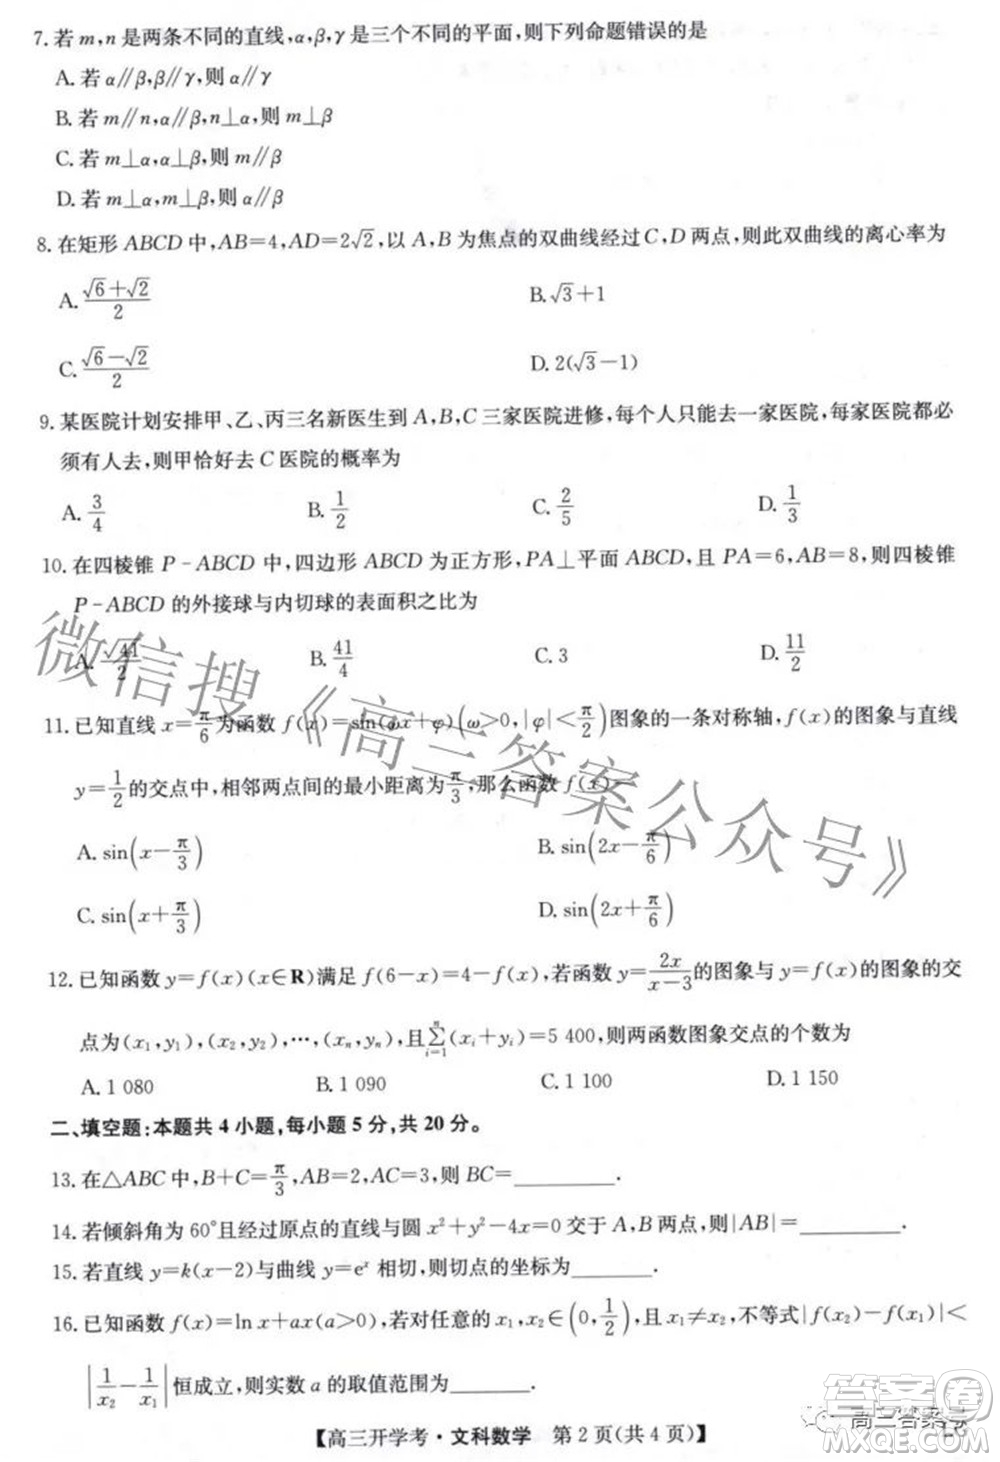 7. 若 m,n 是两条不同的直线,α,β,γ 是三个不同的平面,则下列命题错误的是
A. 若 α∥β,β∥γ,则 α∥γ
B. 若 m∥n,α∥β,n⊥α,则 m⊥β
C. 若 m⊥α,α⊥β,则 m∥β
D. 若 m⊥α,m⊥β,则 α∥β
8. 在矩形 ABCD 中,AB=4,AD=2√2,以 A,B 为焦点的双曲线经过 C,D 两点,则此双曲线的离心率为
A. (√6+√2)/2 B. √3+1
C. (√6-√2)/2 D. 2(√3-1)
9. 某医院计划安排甲、乙、丙三名新医生到 A,B,C 三家医院进修,每个人只能去一家医院,每家医院都必
须有人去,则甲恰好去 C 医院的概率为
A. 3/4 B. 1/2 C. 2/5 D. 1/3
10. 在四棱锥 P-ABCD 中,四边形 ABCD 为正方形,PA⊥平面 ABCD,且 PA=6,AB=8,则四棱锥
P-ABCD 的外接球与内切球的表面积之比为
A. √41/2 B. 41/4 C. 3 D. 11/2
11. 已知直线 x=π/6 为函数 f(x)=sin(ωx+φ)(ω>0,|φ|<π/2)图象的一条对称轴,f(x)的图象与直线
y=1/2 的交点中,相邻两点间的最小距离为 π/3,那么函数 f(x)=
A. sin(x-π/3) B. sin(2x-π/6)
C. sin(x+π/3) D. sin(2x+π/6)
12. 已知函数 y=f(x)(x∈R)满足 f(6-x)=4-f(x),若函数 y=2x/(x-3) 的图象与 y=f(x)的图象的交
点为(x₁,y₁),(x₂,y₂),…,(xₙ,yₙ),且 ∑ⁿᵢ₌₁(xᵢ+yᵢ)=5 400,则两函数图象交点的个数为
A. 1 080 B. 1 090 C. 1 100 D. 1 150
二、填空题:本题共 4 小题,每小题 5 分,共 20 分。
13. 在△ABC 中,B+C=π/3,AB=2,AC=3,则 BC=________.
14. 若倾斜角为 60°且经过原点的直线与圆 x²+y²-4x=0 交于 A,B 两点,则|AB|=________.
15. 若直线 y=k(x-2)与曲线 y=eˣ 相切,则切点的坐标为________.
16. 已知函数 f(x)=ln x+ax(a>0),若对任意的 x₁,x₂∈(0,1/2),且 x₁≠x₂,不等式|f(x₂)-f(x₁)|<
|1/x₂-1/x₁|恒成立,则实数 a 的取值范围为________.
【高三开学考·文科数学 第 2 页(共 4 页)】
微信搜《高三答案公众号》
答案圈